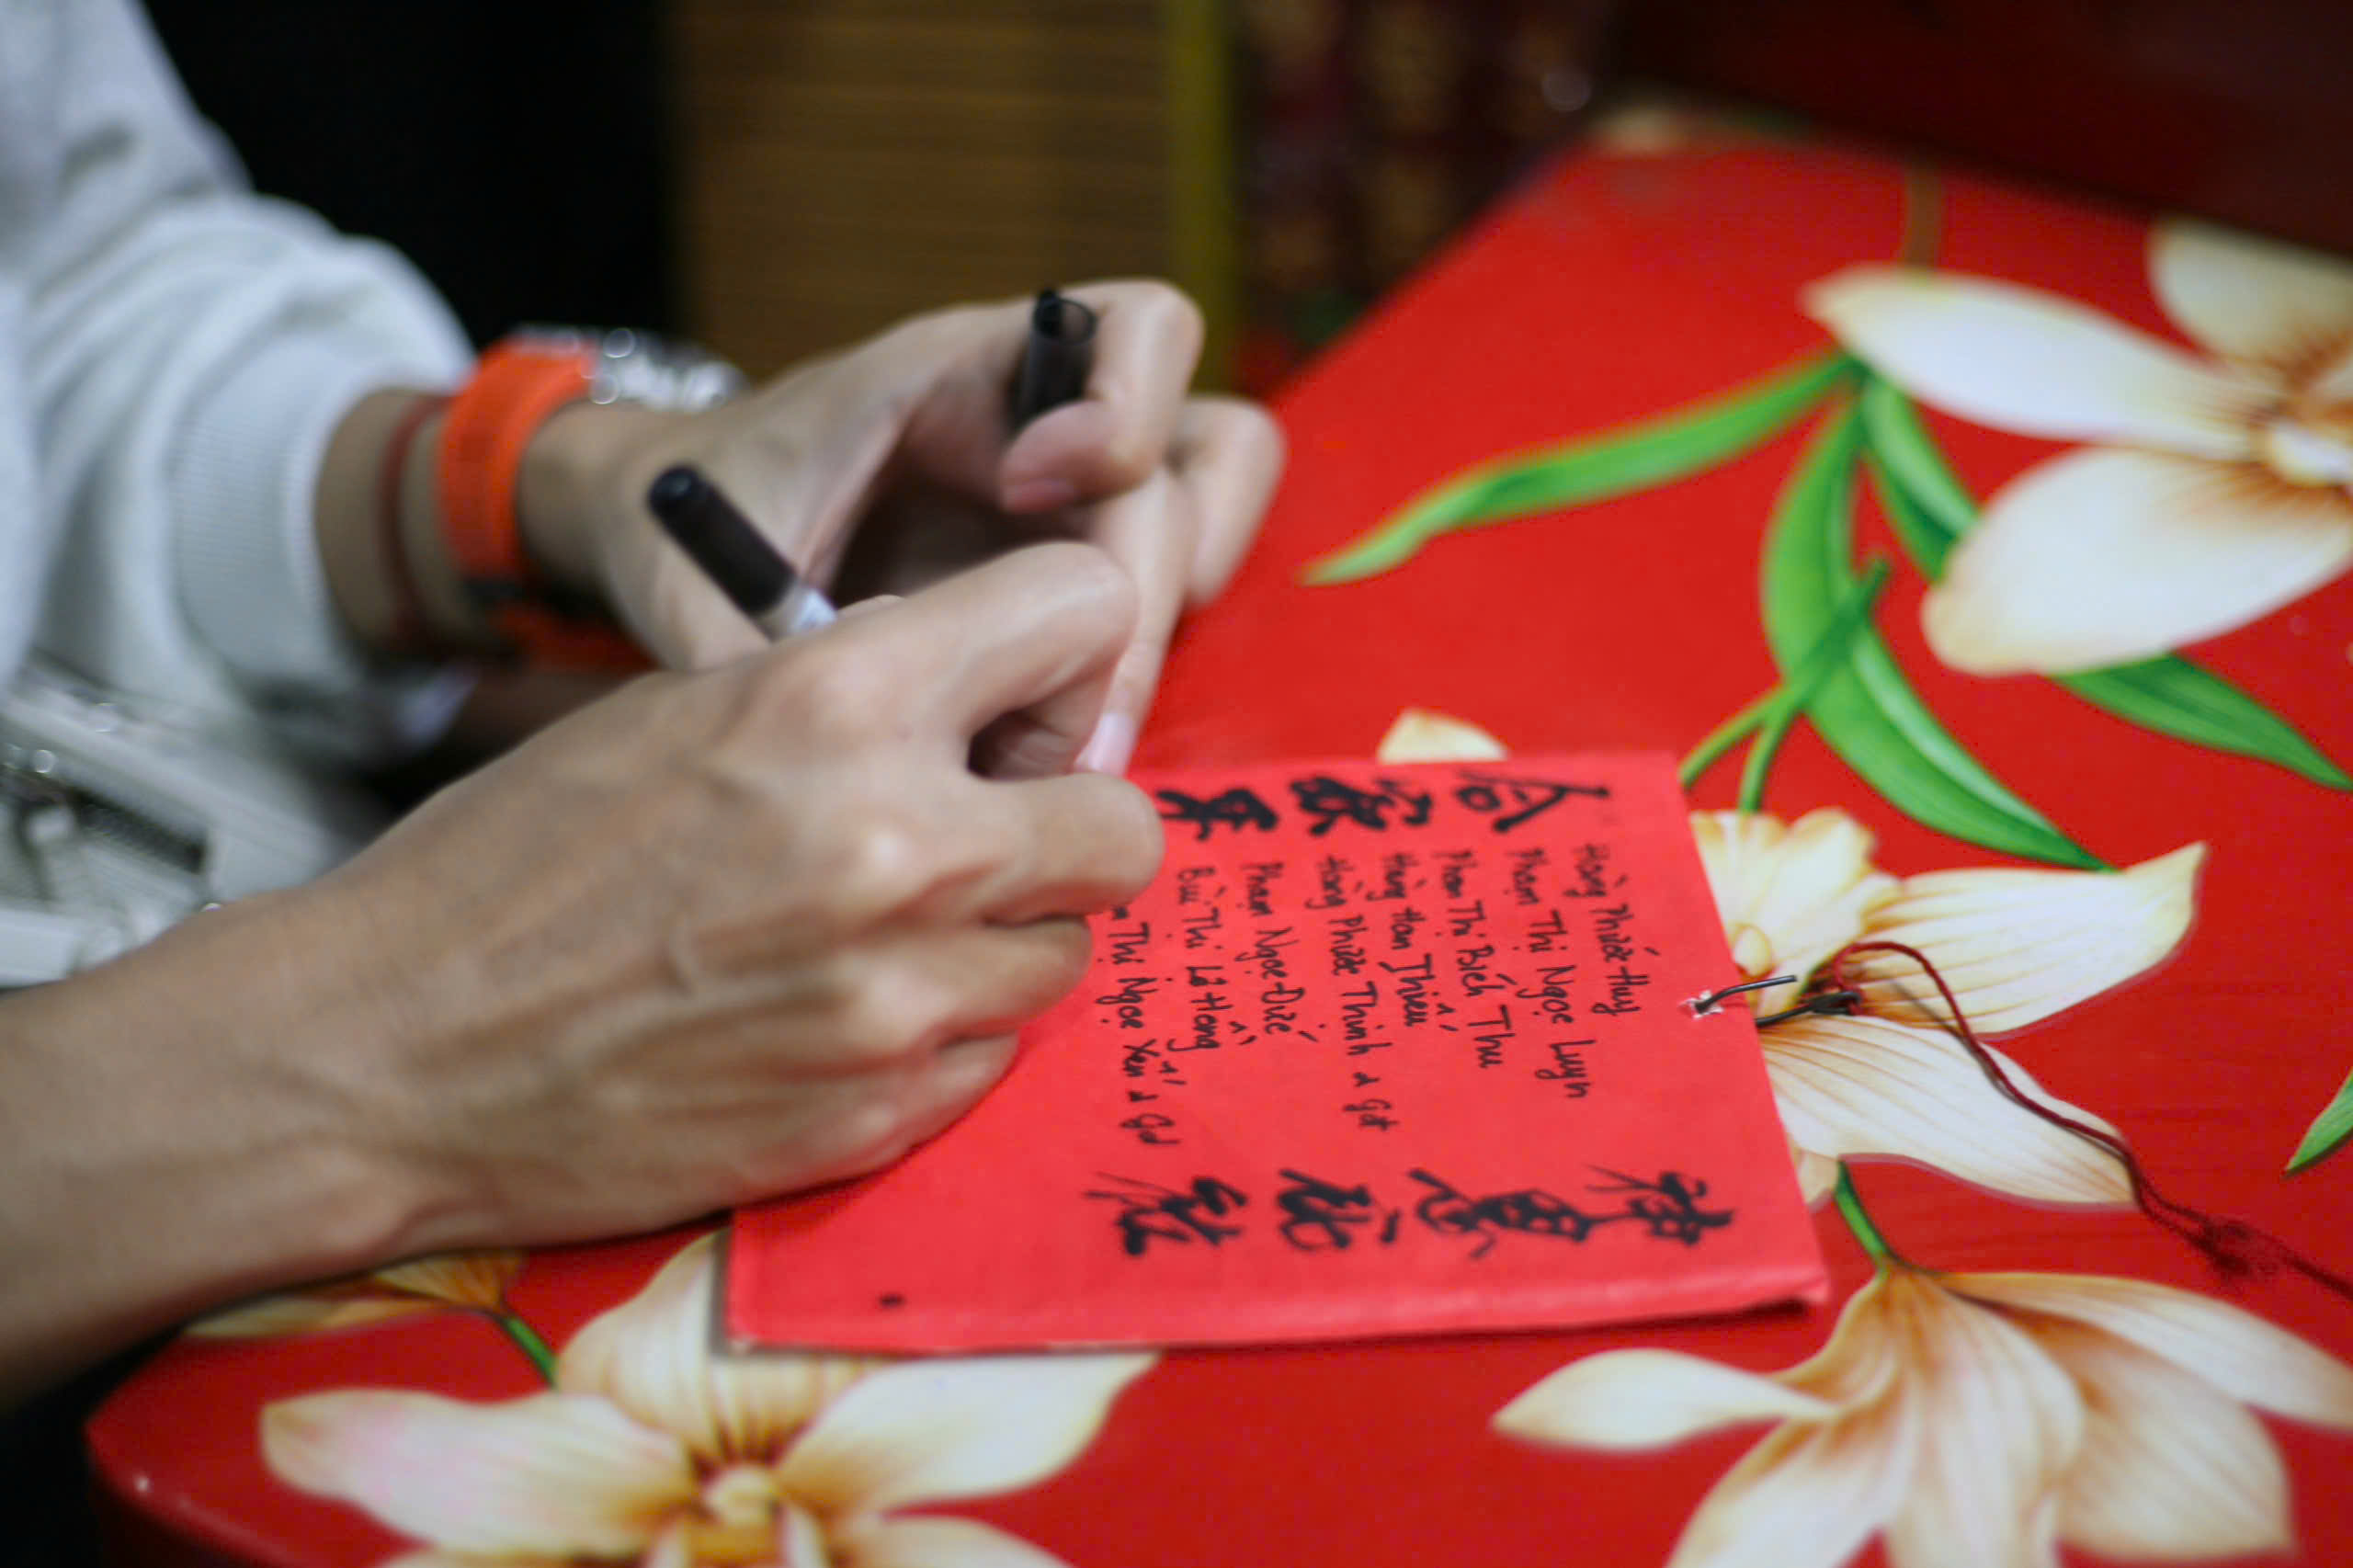 合家平
Hoàng Phước Huy
Phạm Thị Ngọc Luyn
Phạm Thị Bích Thu
Hoàng Hoa Thiếu
Hoàng Phước Thịnh & gđ
Phạm Ngọc Đức
Bùi Thị Lệ Hồng
Thị Ngọc Yến & gđ